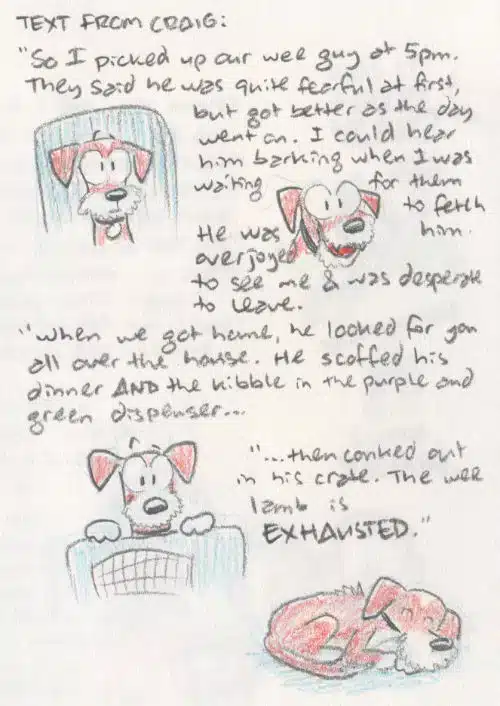 TEXT FROM CRAIG:
"So I picked up our wee guy at 5pm.
They said he was quite fearful at first,
but got better as the day
went on. I could hear
him barking when I was
waiting for them
to fetch
He was him.
overjoyed
to see me & was desperate
to leave.
"when we got home, he looked for you
all over the house. He scoffed his
dinner AND the kibble in the purple and
green dispenser...
"...then conked out
in his crate. The wee
lamb is
EXHAUSTED."